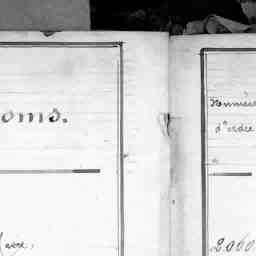 oms.
Numéro
d'ordre
2060